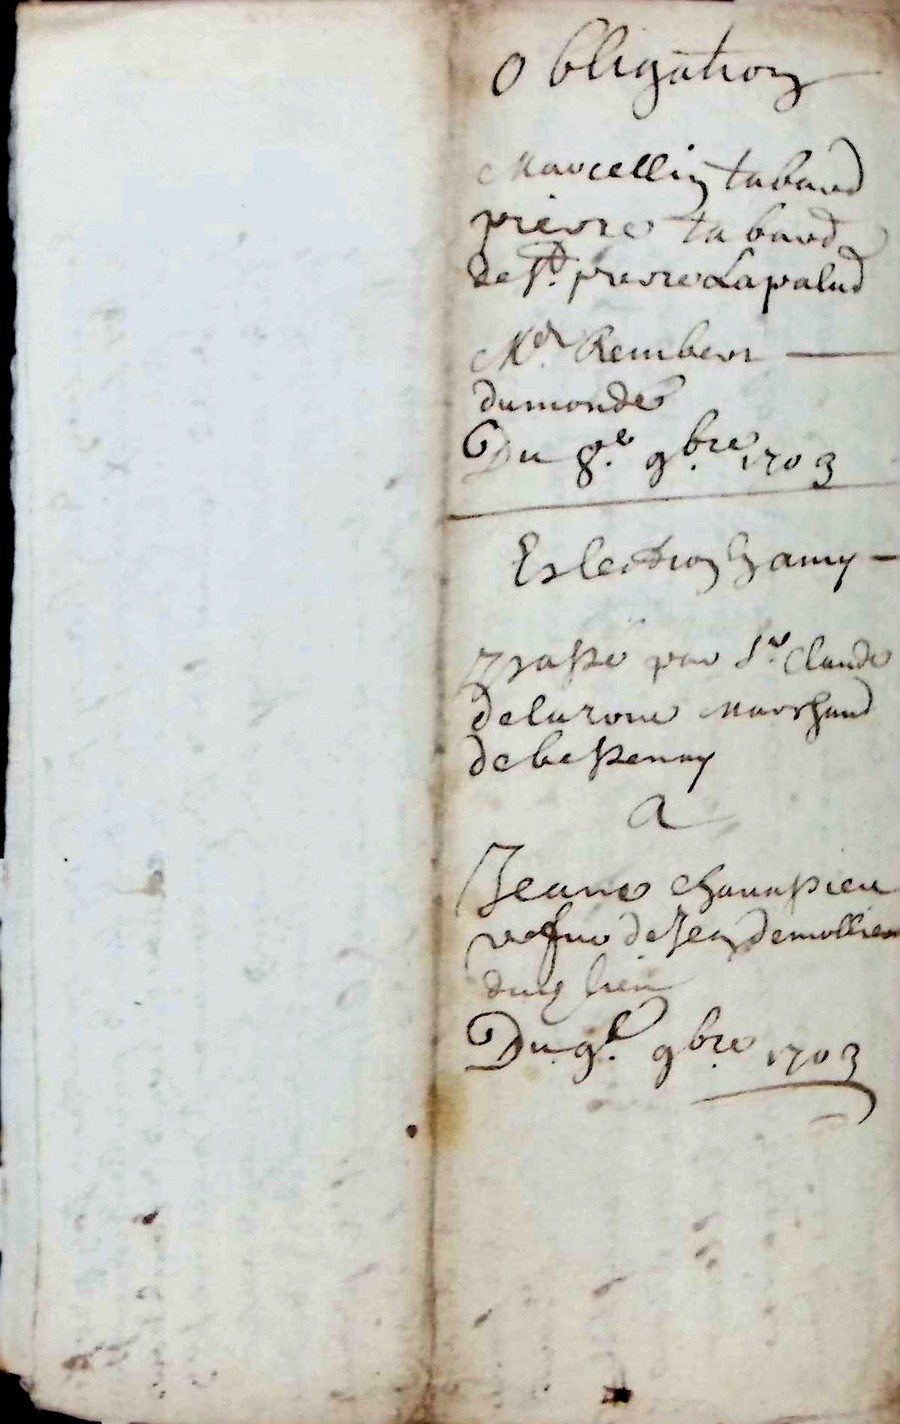 Obligation
Marcellin tabard
pierre tabard
de St. pierre Lapalud
Me. Rembert
dumonde
Du 8.e 9bre. 1703
Eslection damy
passé par Sr. Claude
delaroue Marchand
de bessenay
A
Jeane chanassieu
vefue de Jean demollien
dud lieu
Du 9e. 9bre. 1703